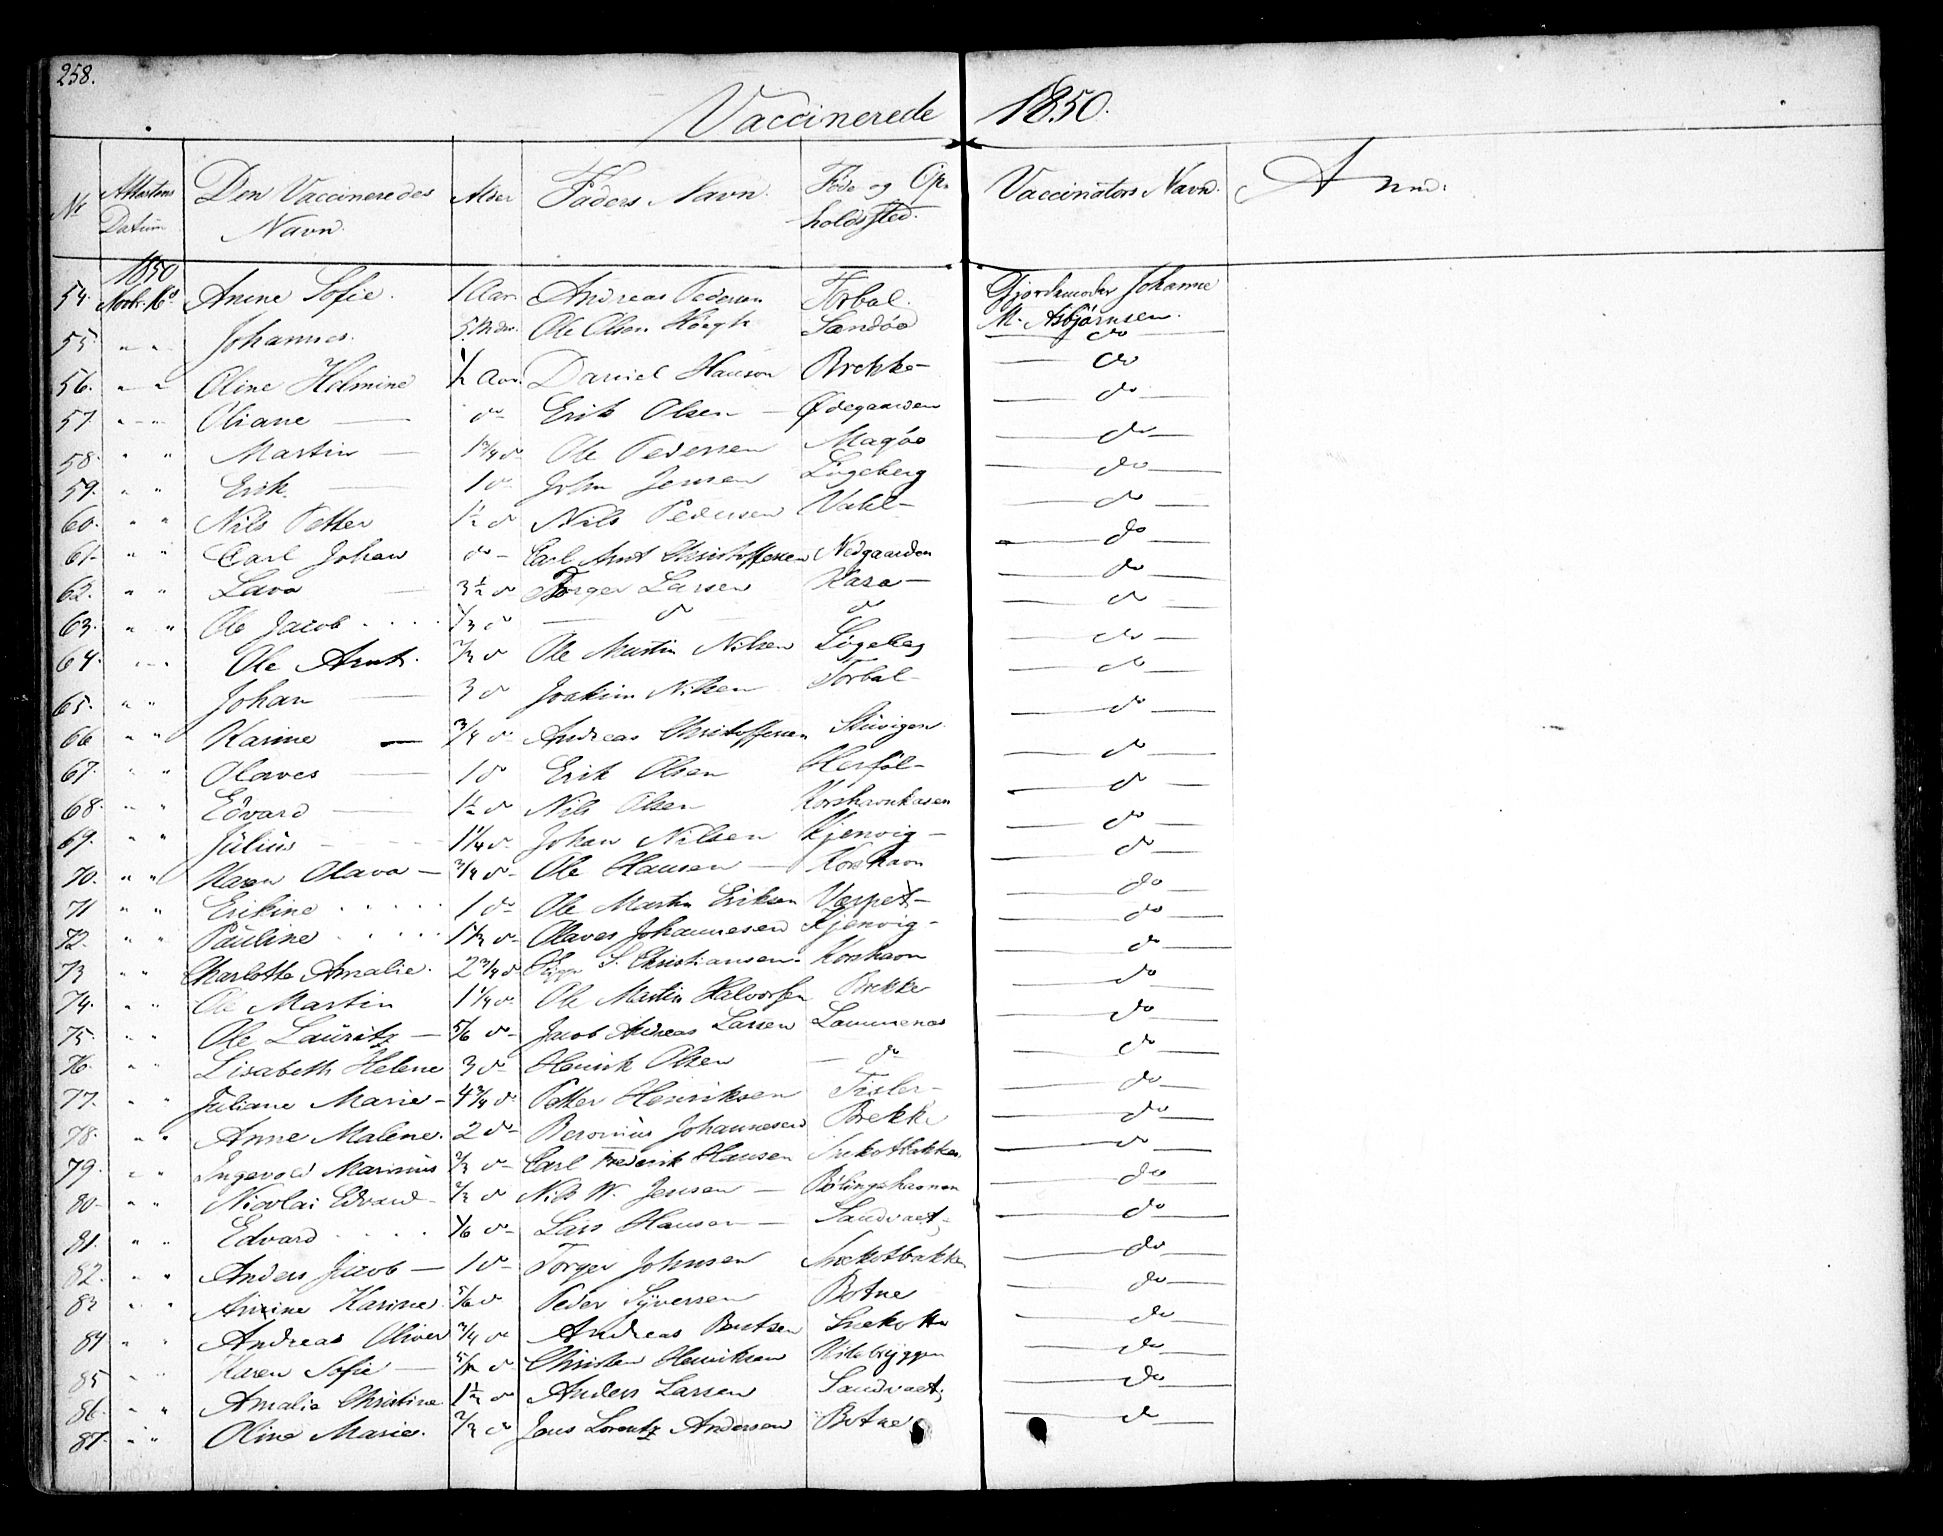 258.
Vaccinerede 1850.
No Attestens Datum Den Vaccineredes Navn. Alder Faders Navn. Føde og Opholdssted. Vaccinators Navn. Anm:
1850
54. Novbr. Anine Sofie. 1 Aar Andreas Pedersen Torbal. Gjordemoder Johanne M. Asbjørnsen.
55 " " Johannes. Ole Olsen Høegh Sandöe do
56. " " Oline Holmine ½ Aar Daniel Hansen Brekke do
57. " " Oliane do Erik Olsen Ødegaarden do
58. " " Martin 1¾ do Ole Pedersen Magöe do
59. " " Erik 1 do John Jensen Lügeberg do
60. " " Nils Petter 1½ do Nils Pedersen do
61. " " Carl Johan do Carl Arnt Christoffersen Nedgaarden do
62. " " Lava 3½ do Torger Larsen Kasa do
63. " " Ole Jacob do do do do
64. " " Ole Arnt. do Ole Martin Nilsen Lügeberg do
65. " " Johan 3 do Joakim Nilsen Torbal do
66 " " Karine ¾ do Andreas Christoffersen Stüvigen. do
67. " " Olaves 1 do Erik Olsen Herföl do
68. " " Edvard 1½ do Nils Olsen Korshavnkasen do
69. " " Jülius 1¼ do Johan Nilsen Kjenvig do
70. " " Karen Olava ¾ do Ole Hansen Korshavn do
71 " " Erikine 1 do Ole Martin Eriksen Væspet do
72. " " Pauline do Olaves Johannesen Kjenvig do
73 " " Charlotte Amalie. 2¾ do S. Christiansen. Korshavn do
74. " " Ole Martin 1¼ do Ole Martin Halvorsen Brekke do
75. " " Ole Lauritz 5/6 do Jacob Andreas Larsen Lammenes do
76. " " Lisabeth Helene 3 do Henrik Olsen do do
77. " " Juliane Marie 4¾ do Petter Henriksen Tisler do
78. " " Anne Malene. 2 do Beronius Johannesen Brekke do
79. " " Ingevald Marinus do Carl Frederik Hansen do
80. " " Nicolai Edvard do Nils W. Jensen Bölingshavnen do
81. " " Edvard 1/6 do Lars Hansen Sandvaet do
82. " " Anders Jacob 1 do Torger Johnsen Snekotbakken do
83 " " Anine Karine. 5/6 do Peder Syversen Botne do
84 " " Andreas Oliver ¾ do Andreas Berntsen Snekotta do
85 " " Karen Sofie do Christen Henriksen Kilebryggen do
86. " " Amalie Christine 1½ do Anders Larsen Sandvaet do
87. " " Oline Marie. do Jens Lorentz Andersen Botne do